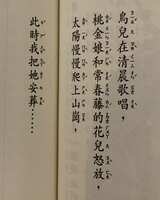 鳥兒在清晨歌唱，
桃金娘和常春藤的花兒怒放，
太陽慢慢爬上山崗，
此時我把她安葬……